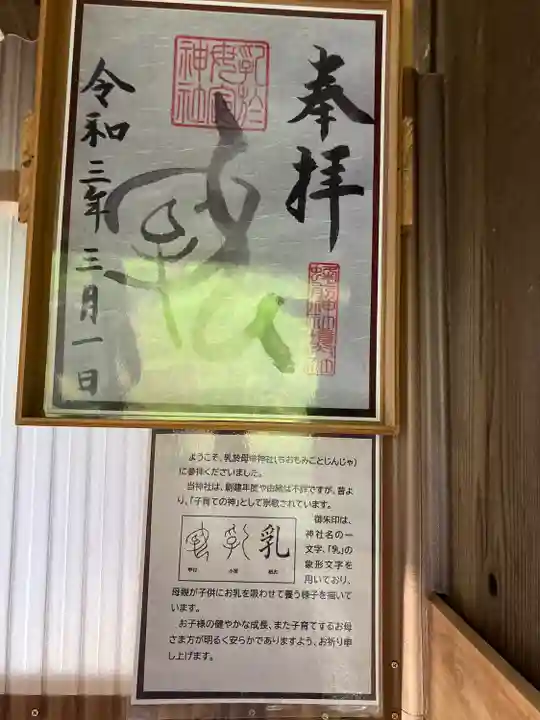 奉拝
乳於
母命
神社
令和三年三月一日
ようこそ、乳於母命神社(ちおもみことじんじゃ)
に参拝くださいました。
当神社は、創建年度や由緒は不詳ですが、昔よ
り、「子育ての神」として崇敬されています。
乳
御朱印は、
神社名の一
文字、「乳」の
象形文字を
用いており、
母親が子供にお乳を吸わせて養う様子を描いて
います。
お子様の健やかな成長、また子育てするお母
さま方が明るく安らかでありますよう、お祈り申
し上げます。